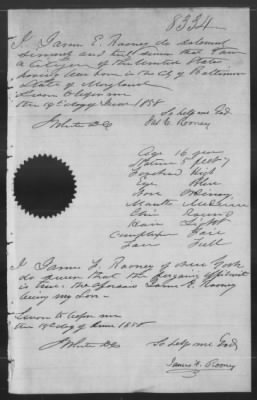 8334
I James E. Rooney do solemnly
swear that I am
a Citizen of the United States
having been born in the City of Baltimore
State of Maryland
Sworn to before me
the 19th day of June 1858
So help me God
Jas. E. Rooney
J White
Age 16 years
Stature 5 feet 7
Forehead High
Eye Blue
Nose Ordinary
Mouth Medium
Chin Round
Hair Light
Complexion Fair
Face Full
I James F. Rooney of New York
do swear that the foregoing affidavit
is true. the James E. Rooney
being my Son.
Sworn to before me
the 19th day of June 1858
So help me God
J White
James F. Rooney